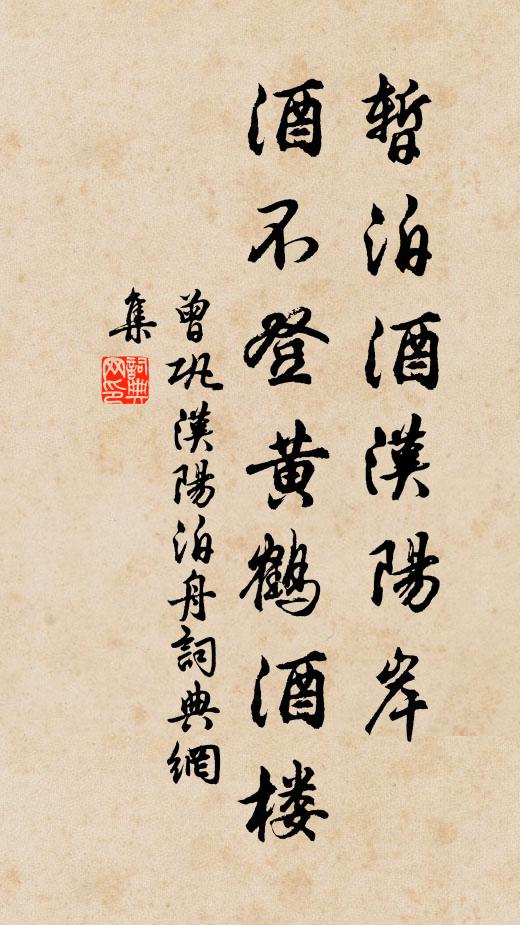 暫泊酒漢陽岸
酒不登黄鶴酒楼
曾巩漢陽泊舟詞典網
集
詞典网印